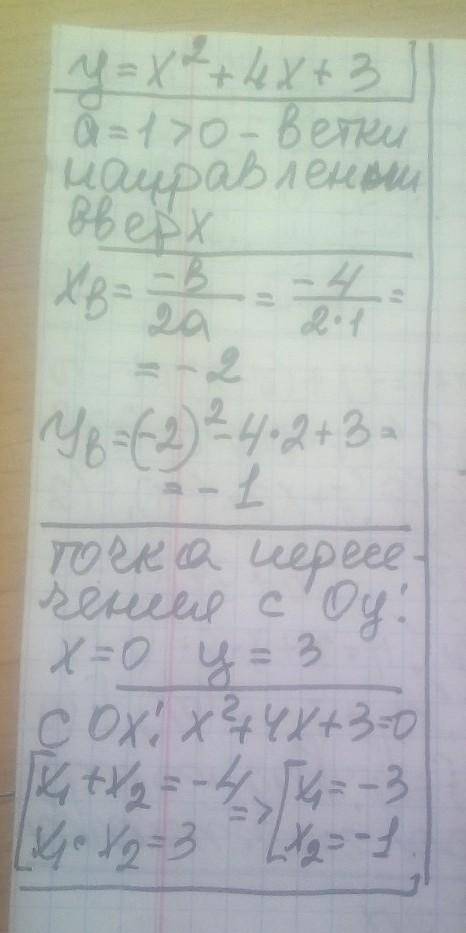 y = x² + 4x + 3
a = 1 > 0 - ветки
направленны
вверх
x_в = -в/2a = -4/2·1 =
= -2
y_в = (-2)² - 4·2 + 3 =
= -1
точка пересе-
чения с Oy:
x = 0 y = 3
с Ox: x² + 4x + 3 = 0
[x₁ + x₂ = -4 => [x₁ = -3
x₁ · x₂ = 3 x₂ = -1